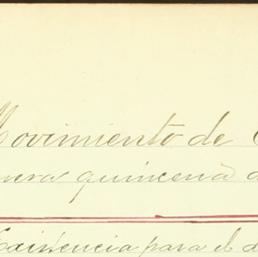 Movimiento de
quincena
Existencia para el